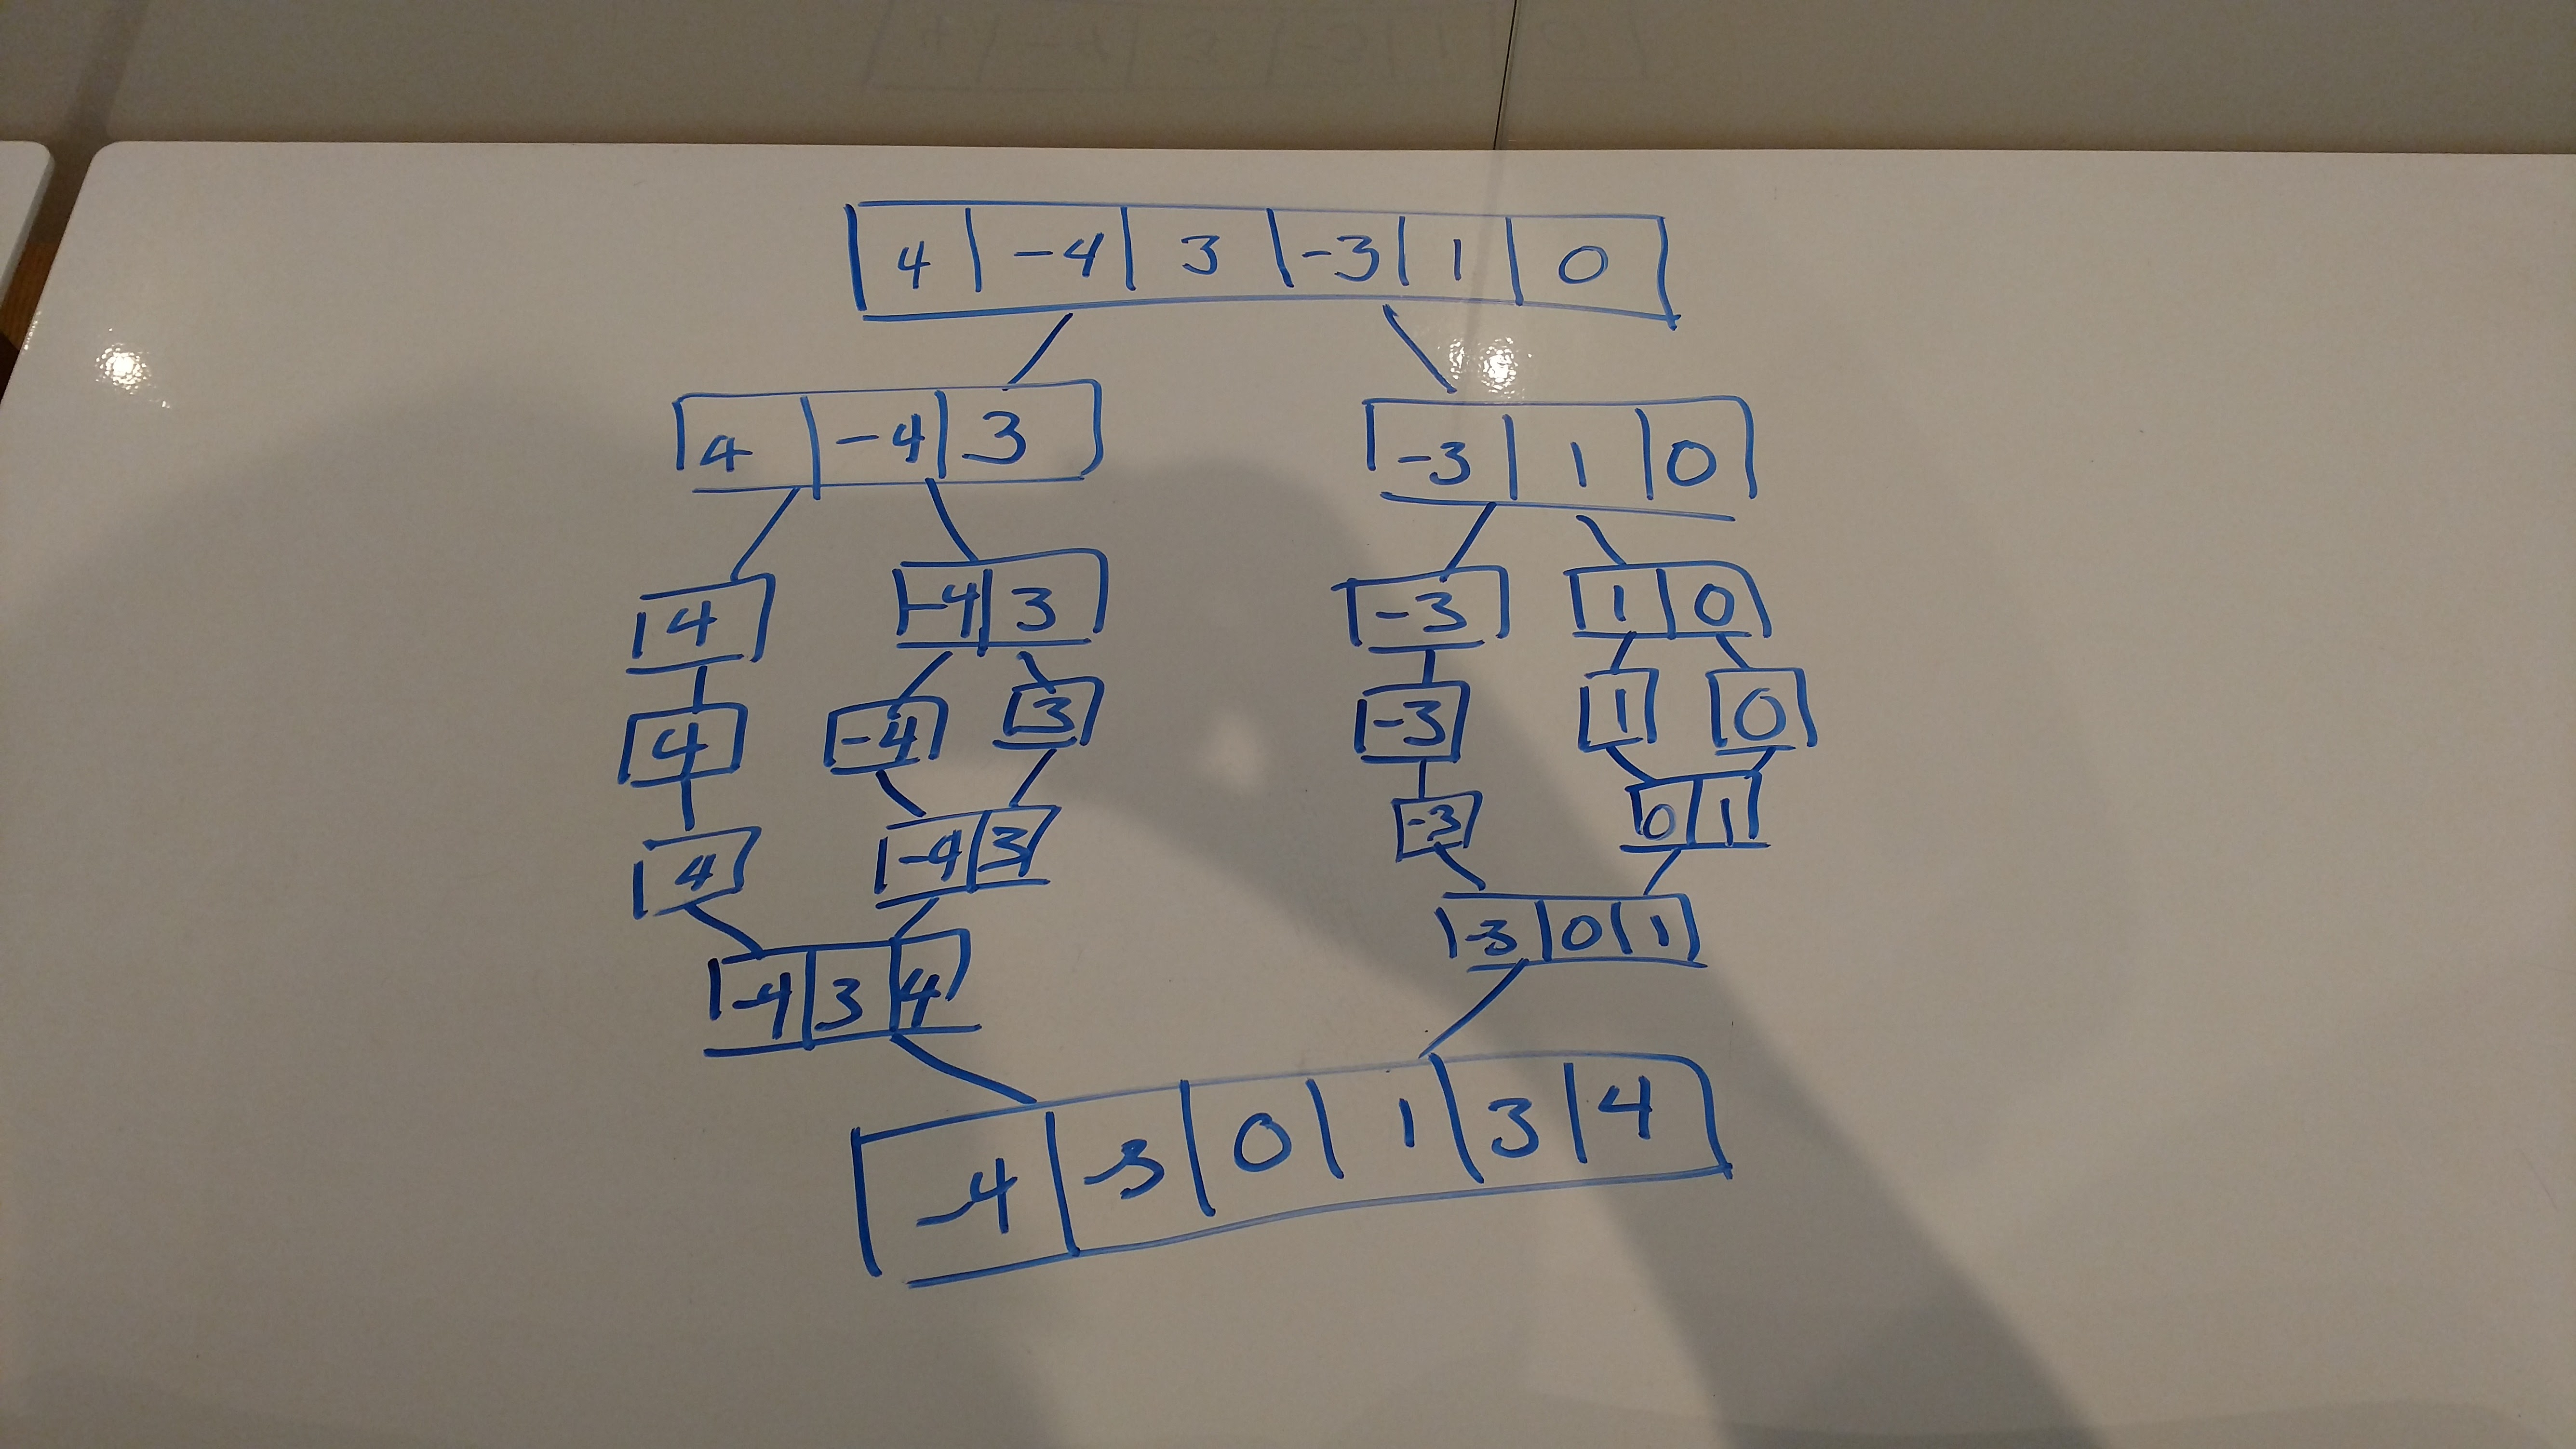 4 -4 3 -3 1 0
4 -4 3 -3 1 0
4 -4 3 -3 1 0
4 -4 3 -3 1 0
4 -4 3 -3 0 1
-4 3 4 -3 0 1
-4 -3 0 1 3 4